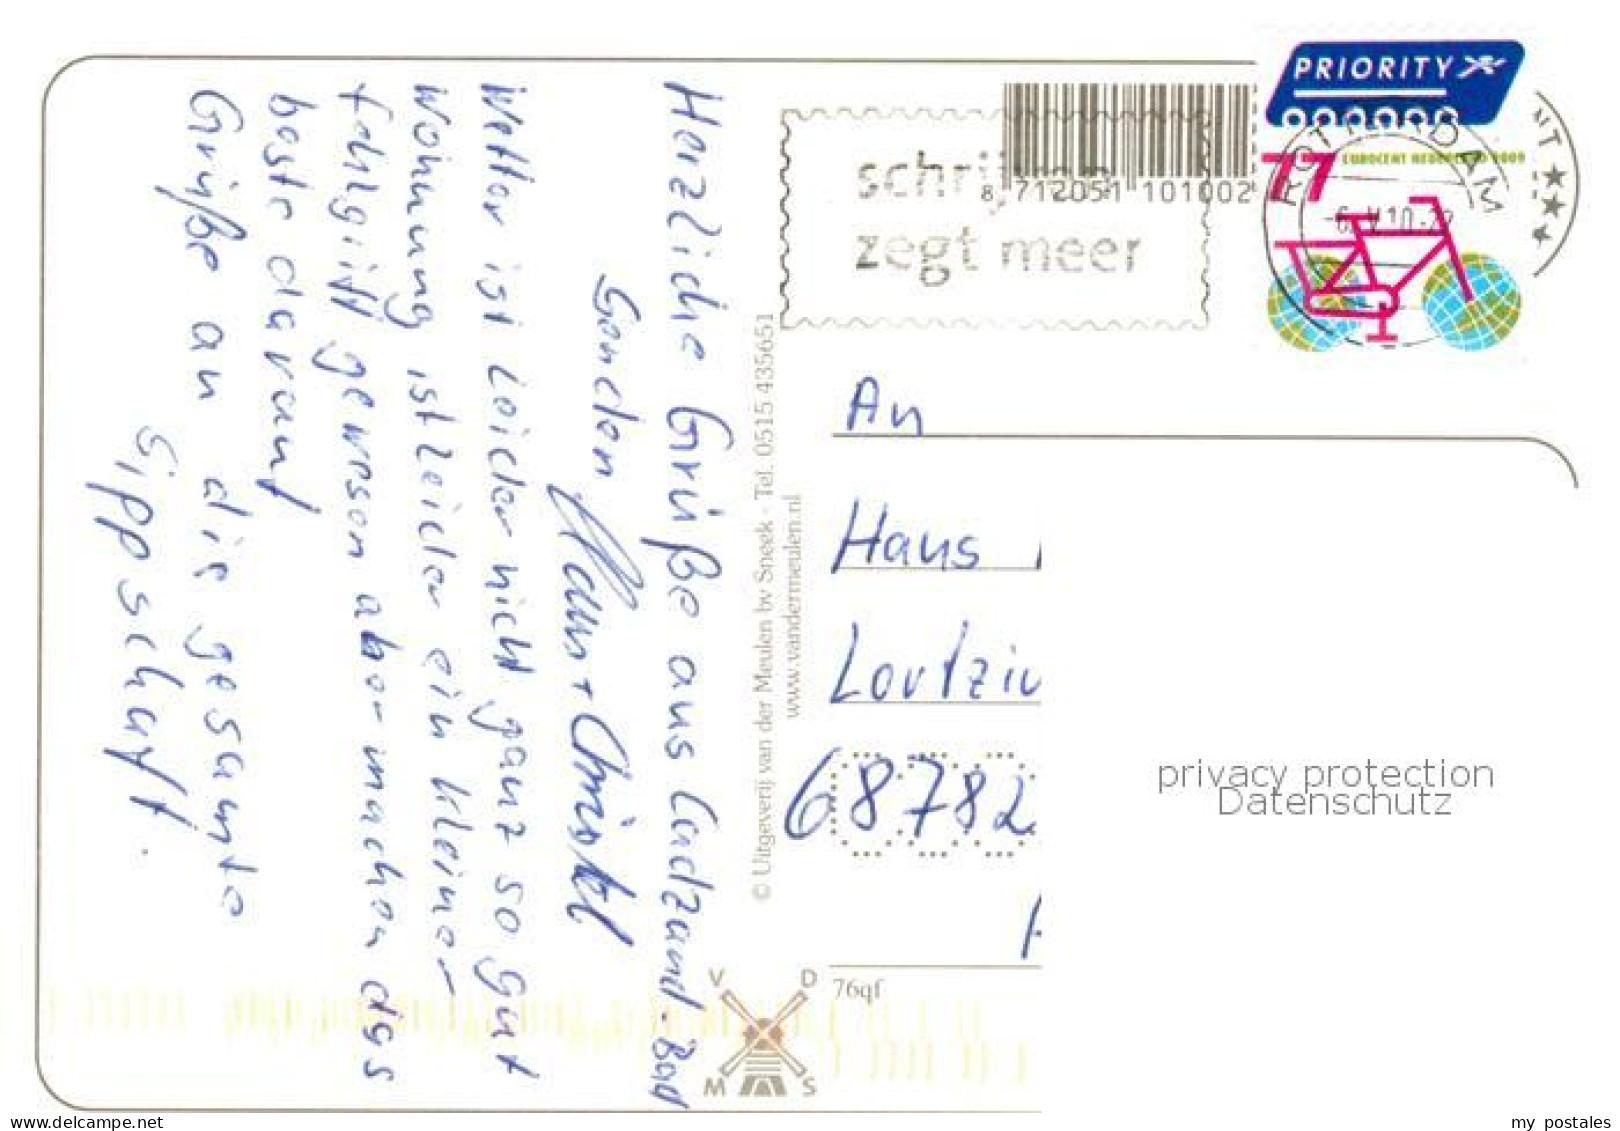 Herzliche Grüße aus Cadzand-Bad
Senden Hans + Christel
Wetter ist leider nicht ganz so gut
Wohnung ist leider ein kleiner
fehlgriff gewesen aber machen das
beste daraus
Grüße an die gesamte
Sippschaft.
© Uitgeverij van der Meulen bv Sneek - Tel. 0515 435651
www.vandermeulen.nl
PRIORITY
77 EUROCENT NEDERLAND 2009
ROTTERDAM
schrijven
zegt meer
8 712051 101002
An
Hans
Lortziu
68782
privacy protection
Datenschutz
V D
M S
76qf
www.delcampe.net
my_postales